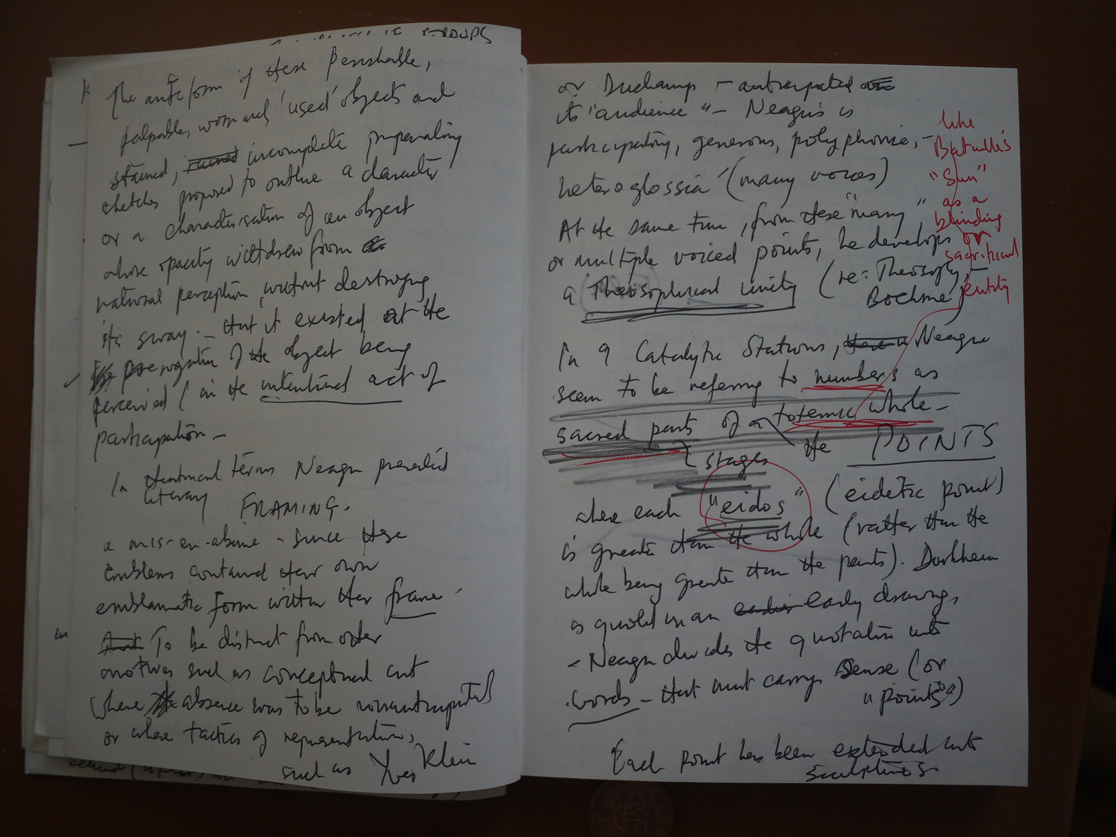 GROUPS
The anteform of these perishable,
palpable, worn and 'used' objects and
stained, incomplete preparatory
sketches proposed to outline a character
or a characterisation of an object
whose opacity withdrew from
national perception, without destroying
its sway. — that it existed at the
of the object being
perceived (in the intentional act of
participation —
In terms Neagu
literary FRAMING.
a mis-en-abime - since these
emblems contained their own
emblematic form within their frame.
To be distinct from other
motives such as conceptual art
where absence was to be
or where tactics of representation,
such as Yves Klein
or Duchamp — anticipated
its "audience" — Neagu's is
participatory, generous, polyphonic, —
heteroglossia (many voices)
At the same time, from these "many"
or multiple voiced points, he develops
a Theosophical unity (re: Theosophy, —
Boehme)
like
Bataille's
"Sun"
as a
blinding
or
sacrificial
entity
In 9 Catalytic Stations, Neagu
seem to be referring to numbers as
sacred parts of a totemic whole —
stages the POINTS
where each "eidos" (eidetic point)
is greater than the whole (rather than the
whole being greater than the parts). Durkheim
is quoted in an early drawing,
— Neagu divides the quotation into
words — that must carry sense (or
"points")
Each point has been extended into
sculptures